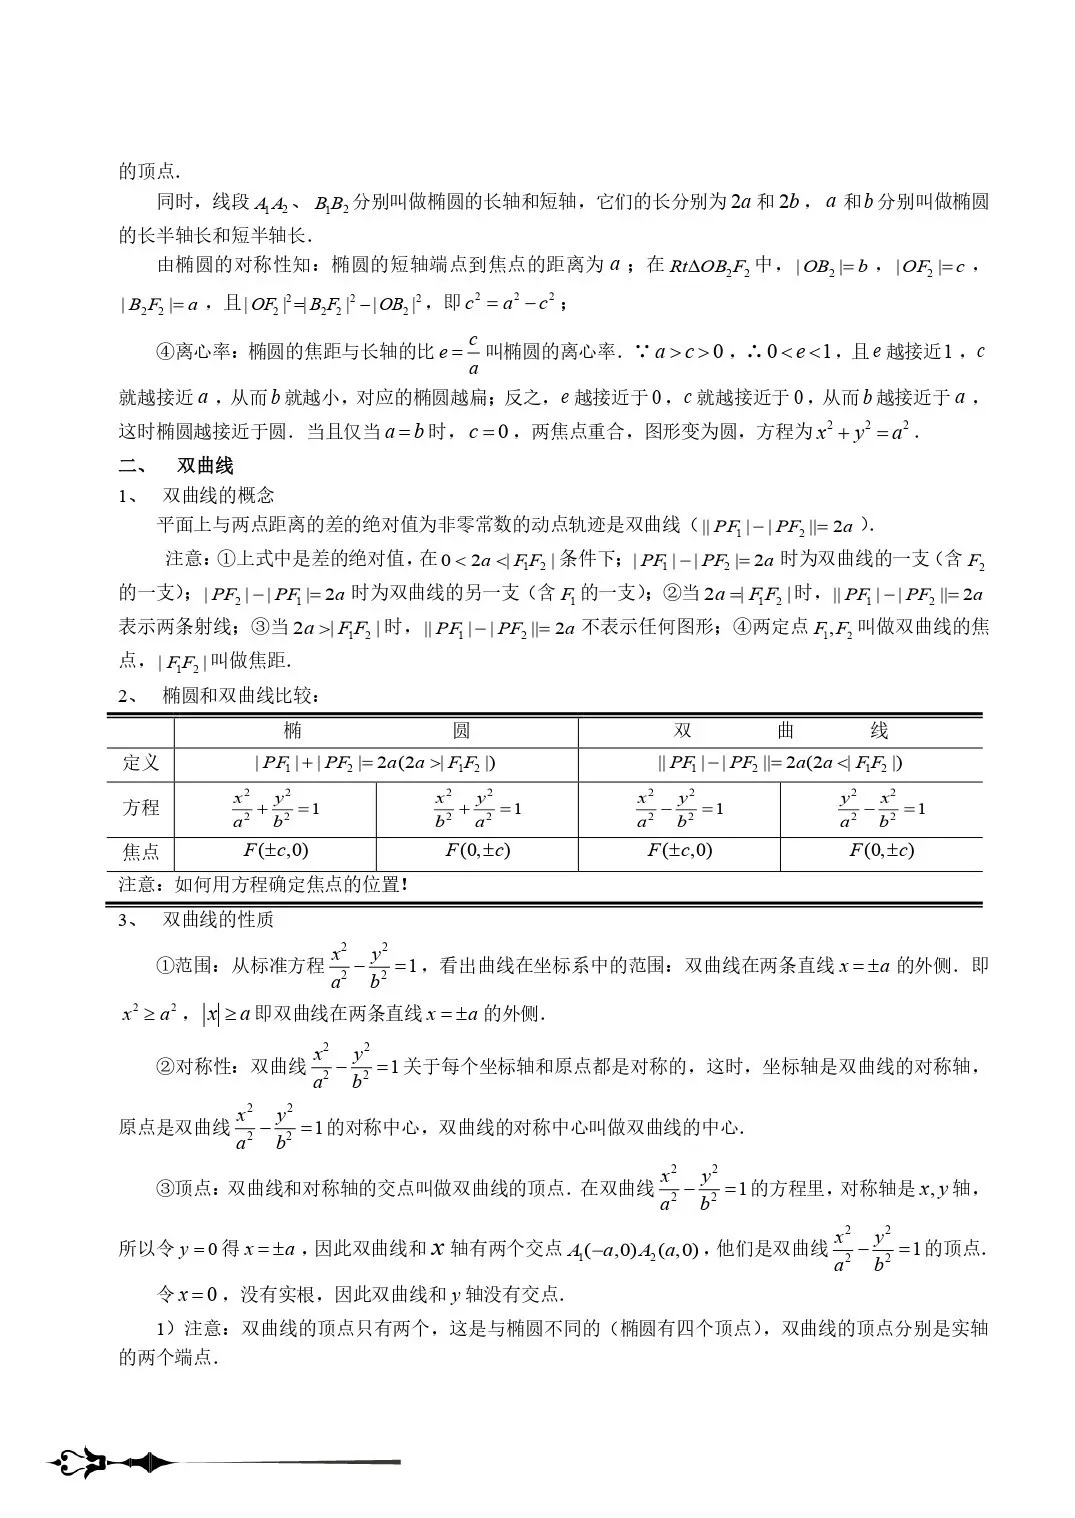 的顶点．
同时，线段 A₁A₂、 B₁B₂ 分别叫做椭圆的长轴和短轴，它们的长分别为 2a 和 2b， a 和 b 分别叫做椭圆
的长半轴长和短半轴长．
由椭圆的对称性知：椭圆的短轴端点到焦点的距离为 a ；在 RtΔOB₂F₂ 中，| OB₂ |= b ，| OF₂ |= c ，
| B₂F₂ |= a ，且 | OF₂ |²=| B₂F₂ |² −| OB₂ |²，即 c² = a² − c² ；
④离心率：椭圆的焦距与长轴的比 e = c/a 叫椭圆的离心率．∵ a > c > 0 ，∴ 0 < e < 1，且 e 越接近 1 ，c
就越接近 a ，从而 b 就越小，对应的椭圆越扁；反之，e 越接近于 0，c 就越接近于 0，从而 b 越接近于 a ，
这时椭圆越接近于圆．当且仅当 a = b 时， c = 0 ，两焦点重合，图形变为圆，方程为 x² + y² = a² ．
二、 双曲线
1、 双曲线的概念
平面上与两点距离的差的绝对值为非零常数的动点轨迹是双曲线（|| PF₁ | − | PF₂ ||= 2a ）．
注意：①上式中是差的绝对值，在 0 < 2a <| F₁F₂ | 条件下；| PF₁ | − | PF₂ |= 2a 时为双曲线的一支（含 F₂
的一支）；| PF₂ | − | PF₁ |= 2a 时为双曲线的另一支（含 F₁ 的一支）；②当 2a =| F₁F₂ | 时，|| PF₁ | − | PF₂ ||= 2a
表示两条射线；③当 2a >| F₁F₂ | 时，|| PF₁ | − | PF₂ ||= 2a 不表示任何图形；④两定点 F₁,F₂ 叫做双曲线的焦
点，| F₁F₂ | 叫做焦距．
2、 椭圆和双曲线比较：
椭 圆 双 曲 线
定义 | PF₁ | + | PF₂ |= 2a(2a >| F₁F₂ |) || PF₁ | − | PF₂ ||= 2a(2a <| F₁F₂ |)
方程 x²/a² + y²/b² = 1 x²/b² + y²/a² = 1 x²/a² − y²/b² = 1 y²/a² − x²/b² = 1
焦点 F(±c,0) F(0,±c) F(±c,0) F(0,±c)
注意：如何用方程确定焦点的位置！
3、 双曲线的性质
①范围：从标准方程 x²/a² − y²/b² = 1，看出曲线在坐标系中的范围：双曲线在两条直线 x = ±a 的外侧．即
x² ≥ a² ，|x| ≥ a 即双曲线在两条直线 x = ±a 的外侧．
②对称性：双曲线 x²/a² − y²/b² = 1 关于每个坐标轴和原点都是对称的，这时，坐标轴是双曲线的对称轴，
原点是双曲线 x²/a² − y²/b² = 1 的对称中心，双曲线的对称中心叫做双曲线的中心．
③顶点：双曲线和对称轴的交点叫做双曲线的顶点．在双曲线 x²/a² − y²/b² = 1 的方程里，对称轴是 x, y 轴，
所以令 y = 0 得 x = ±a ，因此双曲线和 x 轴有两个交点 A₁(−a,0)A₂(a,0)，他们是双曲线 x²/a² − y²/b² = 1 的顶点．
令 x = 0 ，没有实根，因此双曲线和 y 轴没有交点．
1）注意：双曲线的顶点只有两个，这是与椭圆不同的（椭圆有四个顶点），双曲线的顶点分别是实轴
的两个端点．